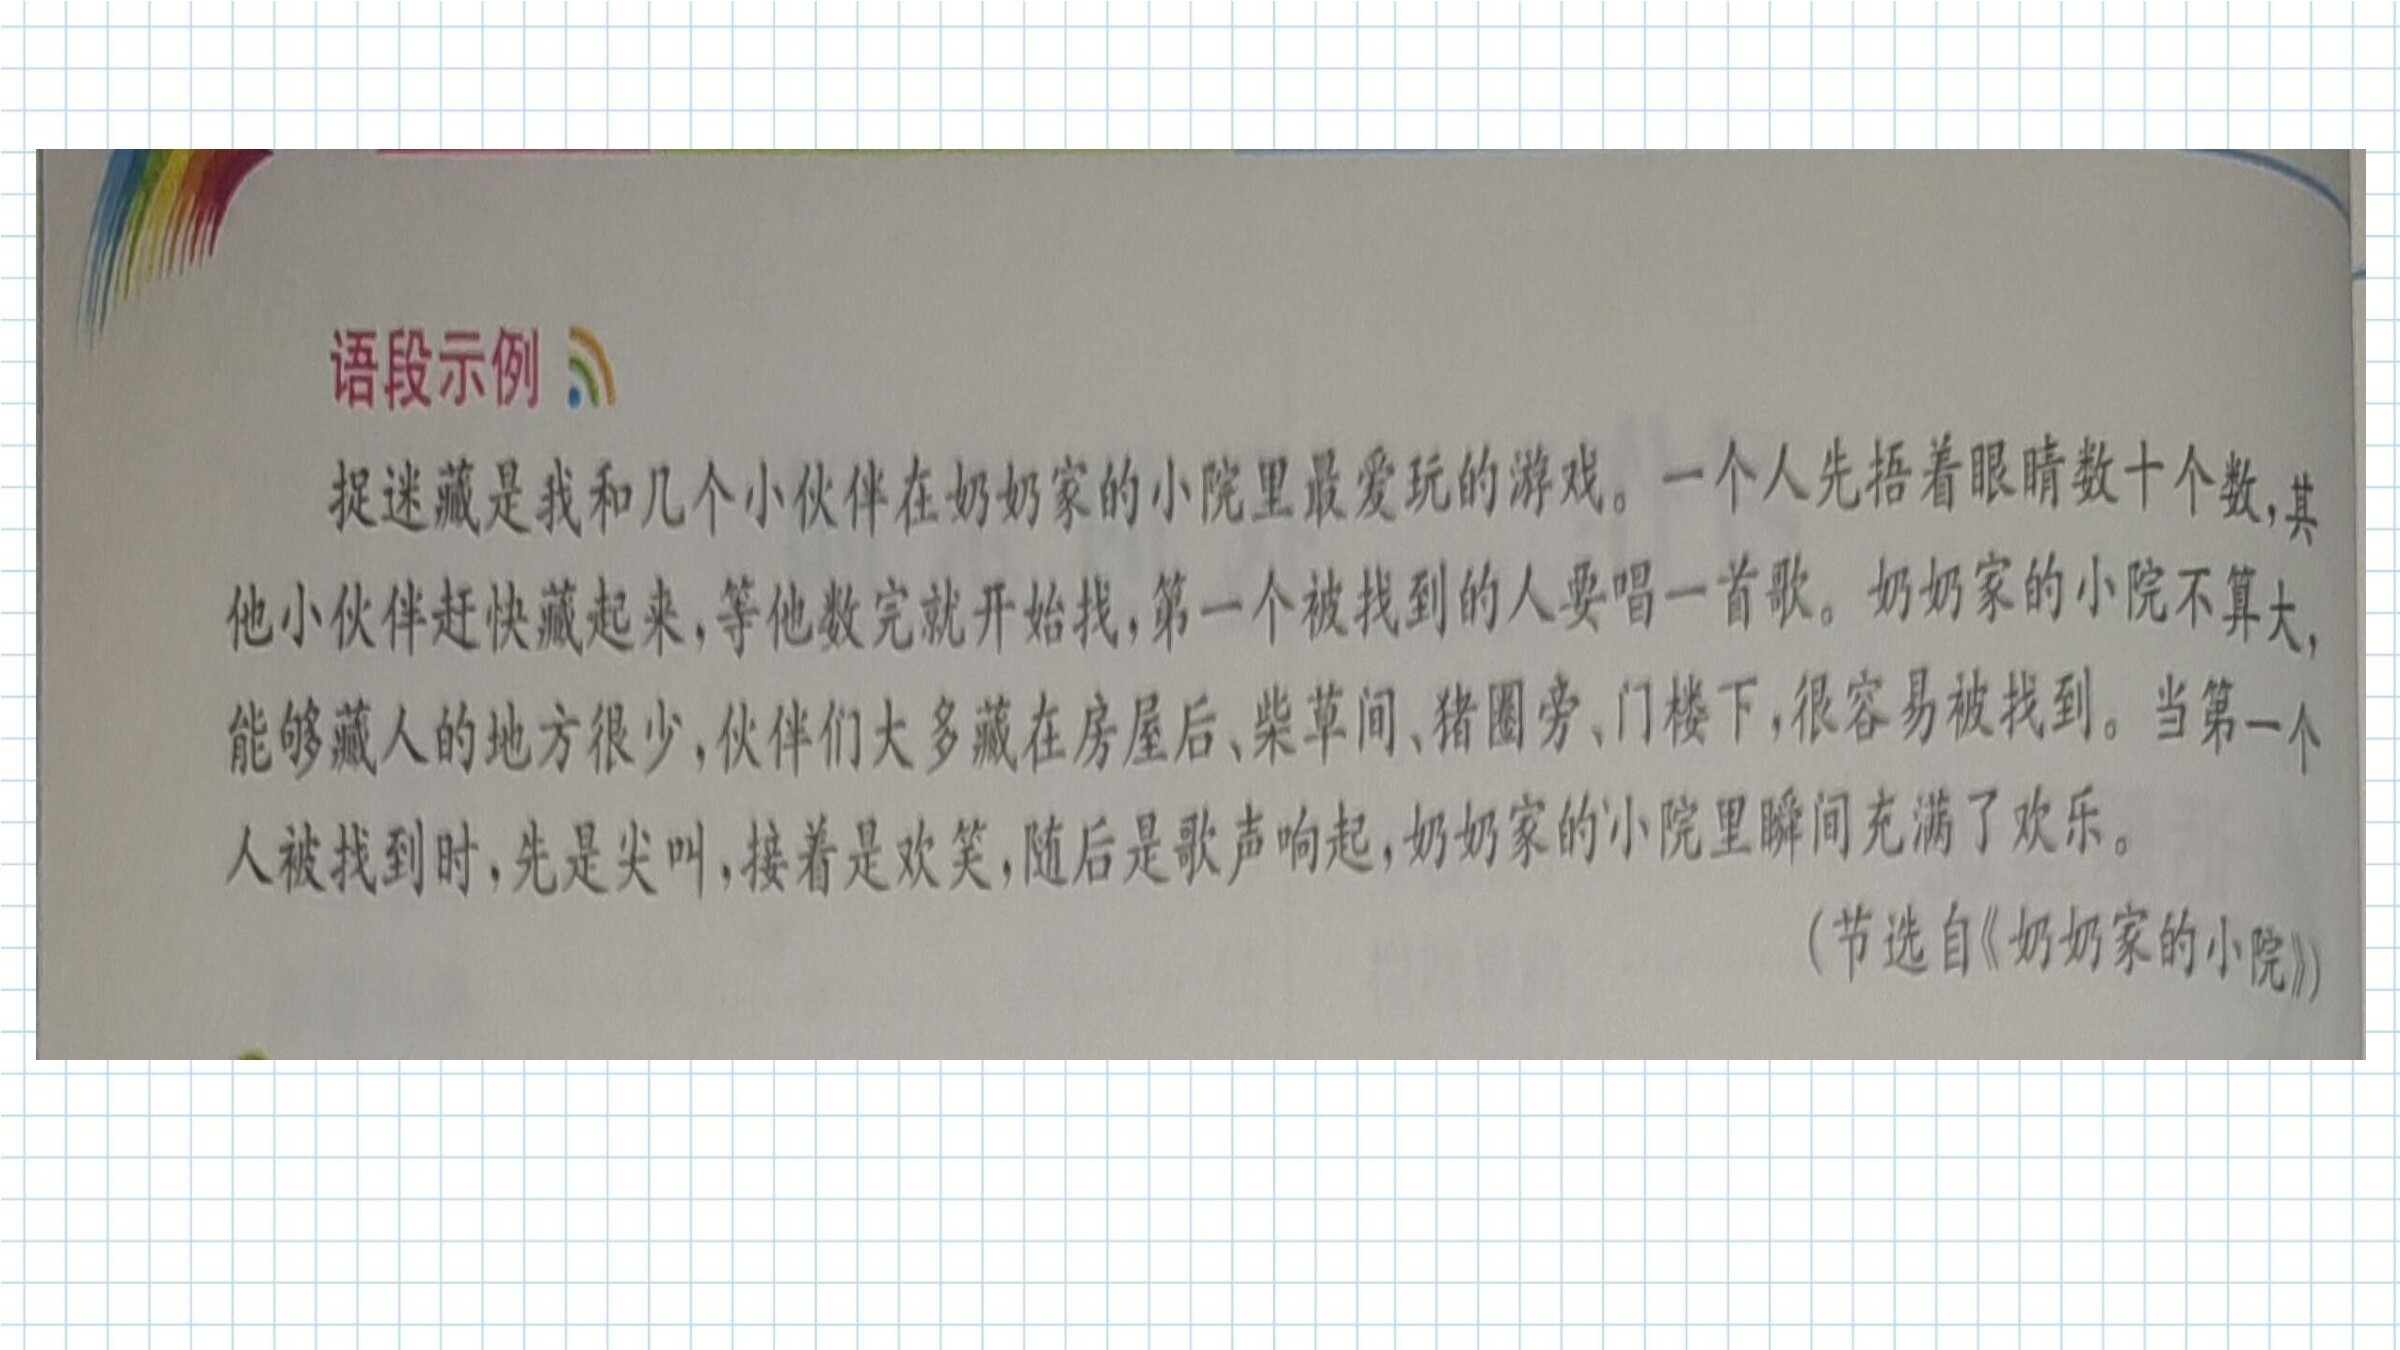 语段示例
捉迷藏是我和几个小伙伴在奶奶家的小院里最爱玩的游戏。一个人先捂着眼睛数十个数，其
他小伙伴赶快藏起来，等他数完就开始找，第一个被找到的人要唱一首歌。奶奶家的小院不算大，
能够藏人的地方很少，伙伴们大多藏在房屋后、柴草间、猪圈旁、门楼下，很容易被找到。当第一个
人被找到时，先是尖叫，接着是欢笑，随后是歌声响起，奶奶家的小院里瞬间充满了欢乐。
（节选自《奶奶家的小院》）